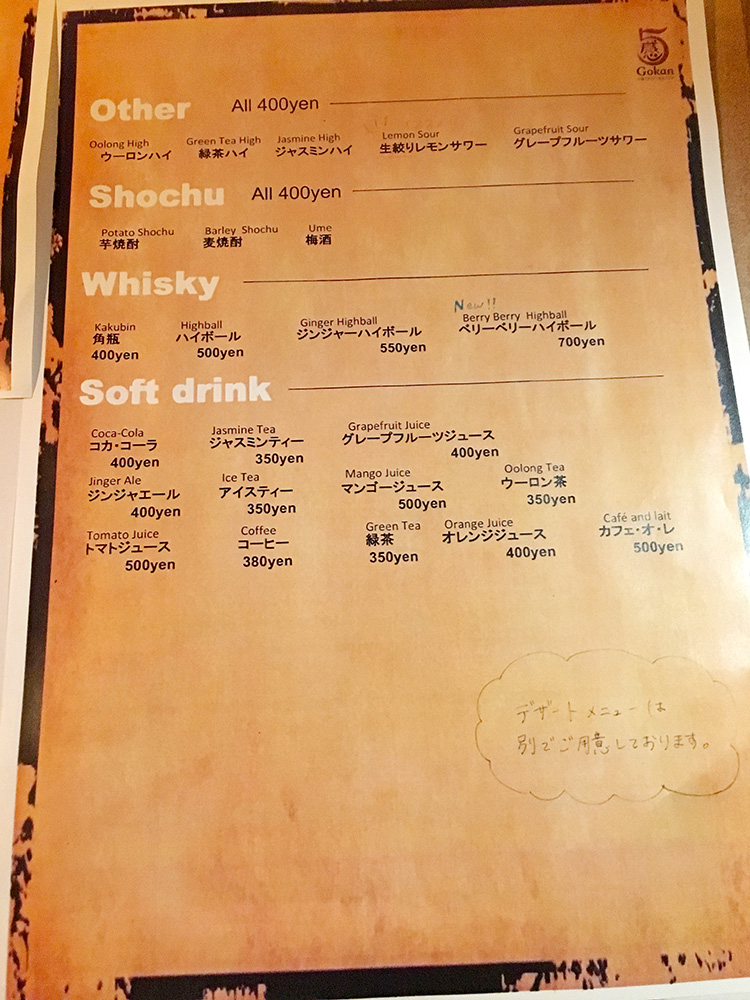 5感
Gokan
Other All 400yen
Oolong High Green Tea High Jasmine High Lemon Sour Grapefruit Sour
ウーロンハイ 緑茶ハイ ジャスミンハイ 生絞りレモンサワー グレープフルーツサワー
Shochu All 400yen
Potato Shochu Barley Shochu Ume
芋焼酎 麦焼酎 梅酒
Whisky
New!!
Kakubin Highball Ginger Highball Berry Berry Highball
角瓶 ハイボール ジンジャーハイボール ベリーベリーハイボール
400yen 500yen 550yen 700yen
Soft drink
Coca-Cola Jasmine Tea Grapefruit Juice
コカ・コーラ ジャスミンティー グレープフルーツジュース
400yen 350yen 400yen
Jinger Ale Ice Tea Mango Juice Oolong Tea
ジンジャエール アイスティー マンゴージュース ウーロン茶
400yen 350yen 500yen 350yen
Tomato Juice Coffee Green Tea Orange Juice Café and lait
トマトジュース コーヒー 緑茶 オレンジジュース カフェ・オ・レ
500yen 380yen 350yen 400yen 500yen
デザートメニューは
別でご用意しております。